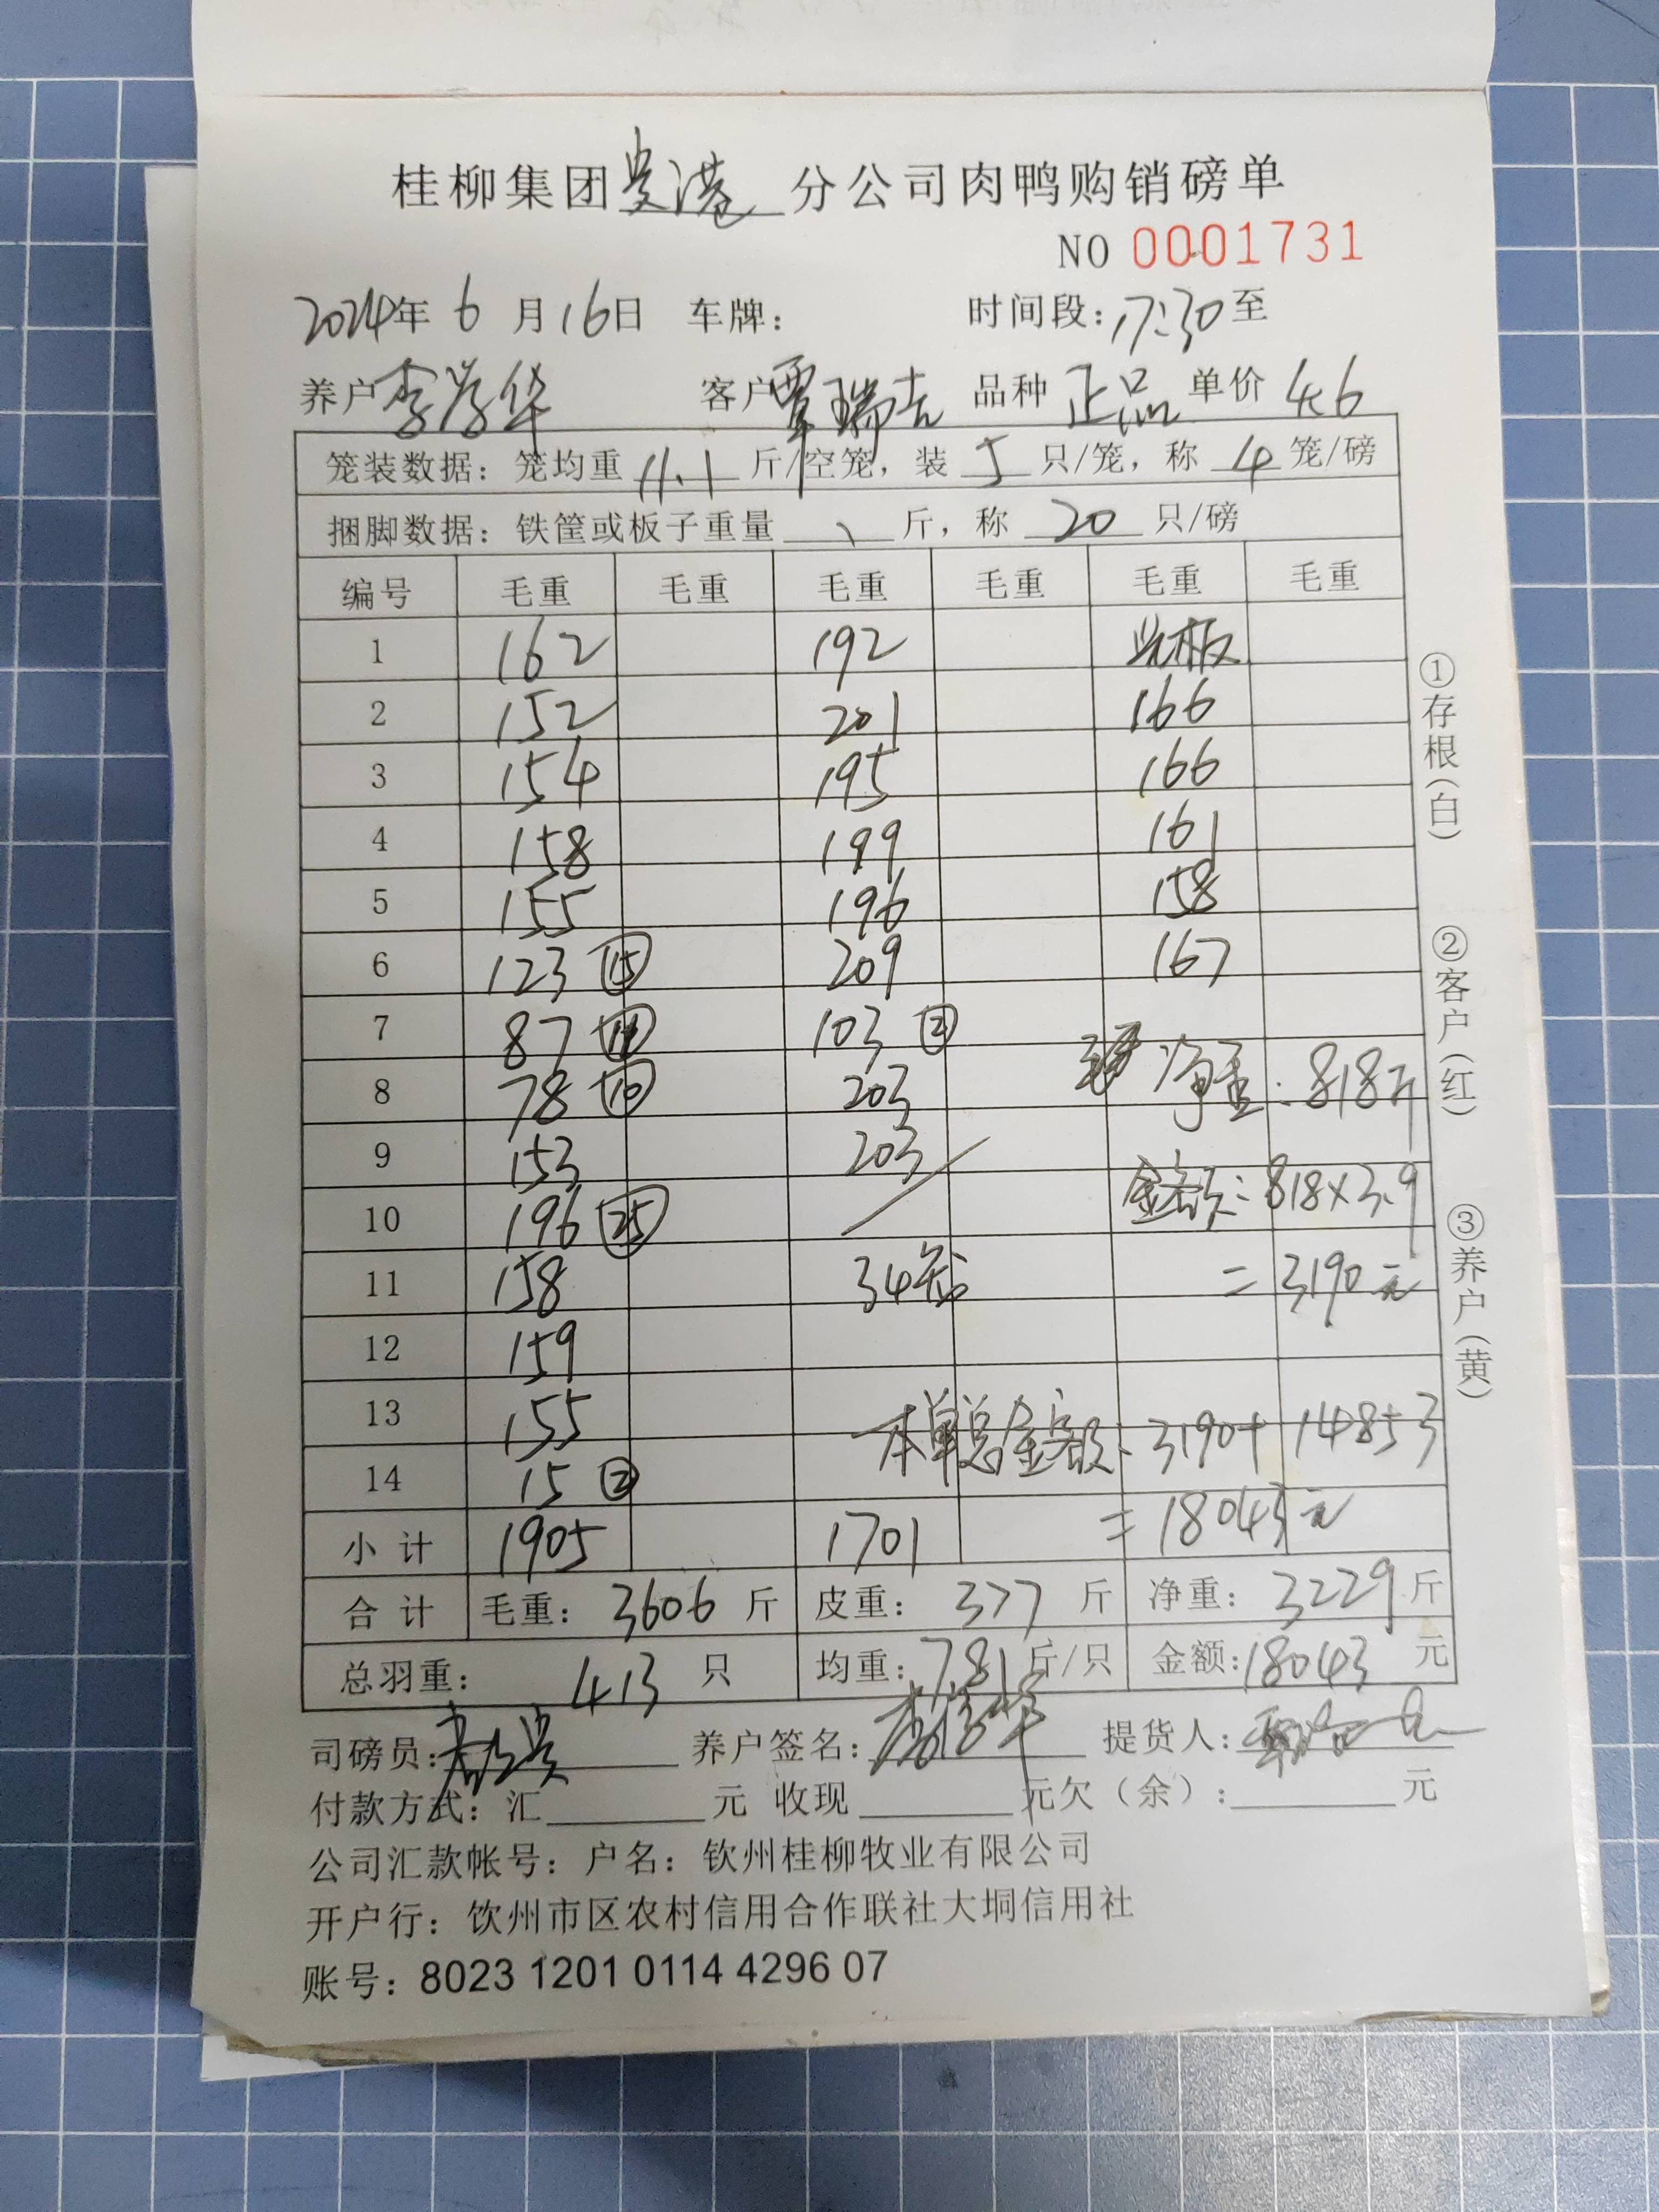 桂柳集团贵港分公司肉鸭购销磅单
NO 0001731
2024年 6 月 16日 车牌： 时间段：17:30至
养户 李学华 客户 覃瑞吉 品种 正品 单价 4.6
笼装数据：笼均重 11.1 斤/空笼，装 5 只/笼，称 4 笼/磅
捆脚数据：铁筐或板子重量 斤，称 20 只/磅
编号 毛重 毛重 毛重 毛重 毛重 毛重
1 162 192 光板
2 152 201 166
3 154 195 166
4 158 199 161
5 155 196 158
6 123 ⑮ 209 167
7 87 ⑪ 103 ②
净重：818斤
8 78 ⑩ 203
9 153 203
金额：818×3.9
10 196 ㉕
11 158 34笼 = 3190元
12 159
13 155
本单总金额：3190+14853
14 15 ②
= 18043元
小计 1905 1701
合计 毛重：3606 斤 皮重：377 斤 净重：3229 斤
总羽重：413 只 均重：7.81 斤/只 金额：18043 元
司磅员： 养户签名：李学华 提货人：
付款方式：汇 元 收现 元欠（余）： 元
公司汇款帐号：户名：钦州桂柳牧业有限公司
开户行：饮州市区农村信用合作联社大垌信用社
账号：8023 1201 0114 4296 07
①存根（白）
②客户（红）
③养户（黄）